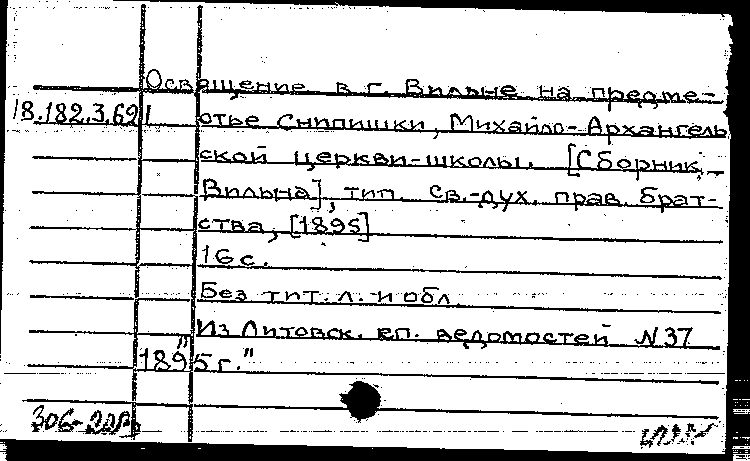 Освящение в г. Вильне на предме-
18.182.3.691 стье Снипишки, Михайло-Архангель
ской церкви-школы. [Сборник,
Вильна], тип. Св.-дух. прав. брат-
ства, [1895]
16 с.
Без тит. л. и обл.
"Из Литовск. еп. ведомостей N 37
1895 г."
306-